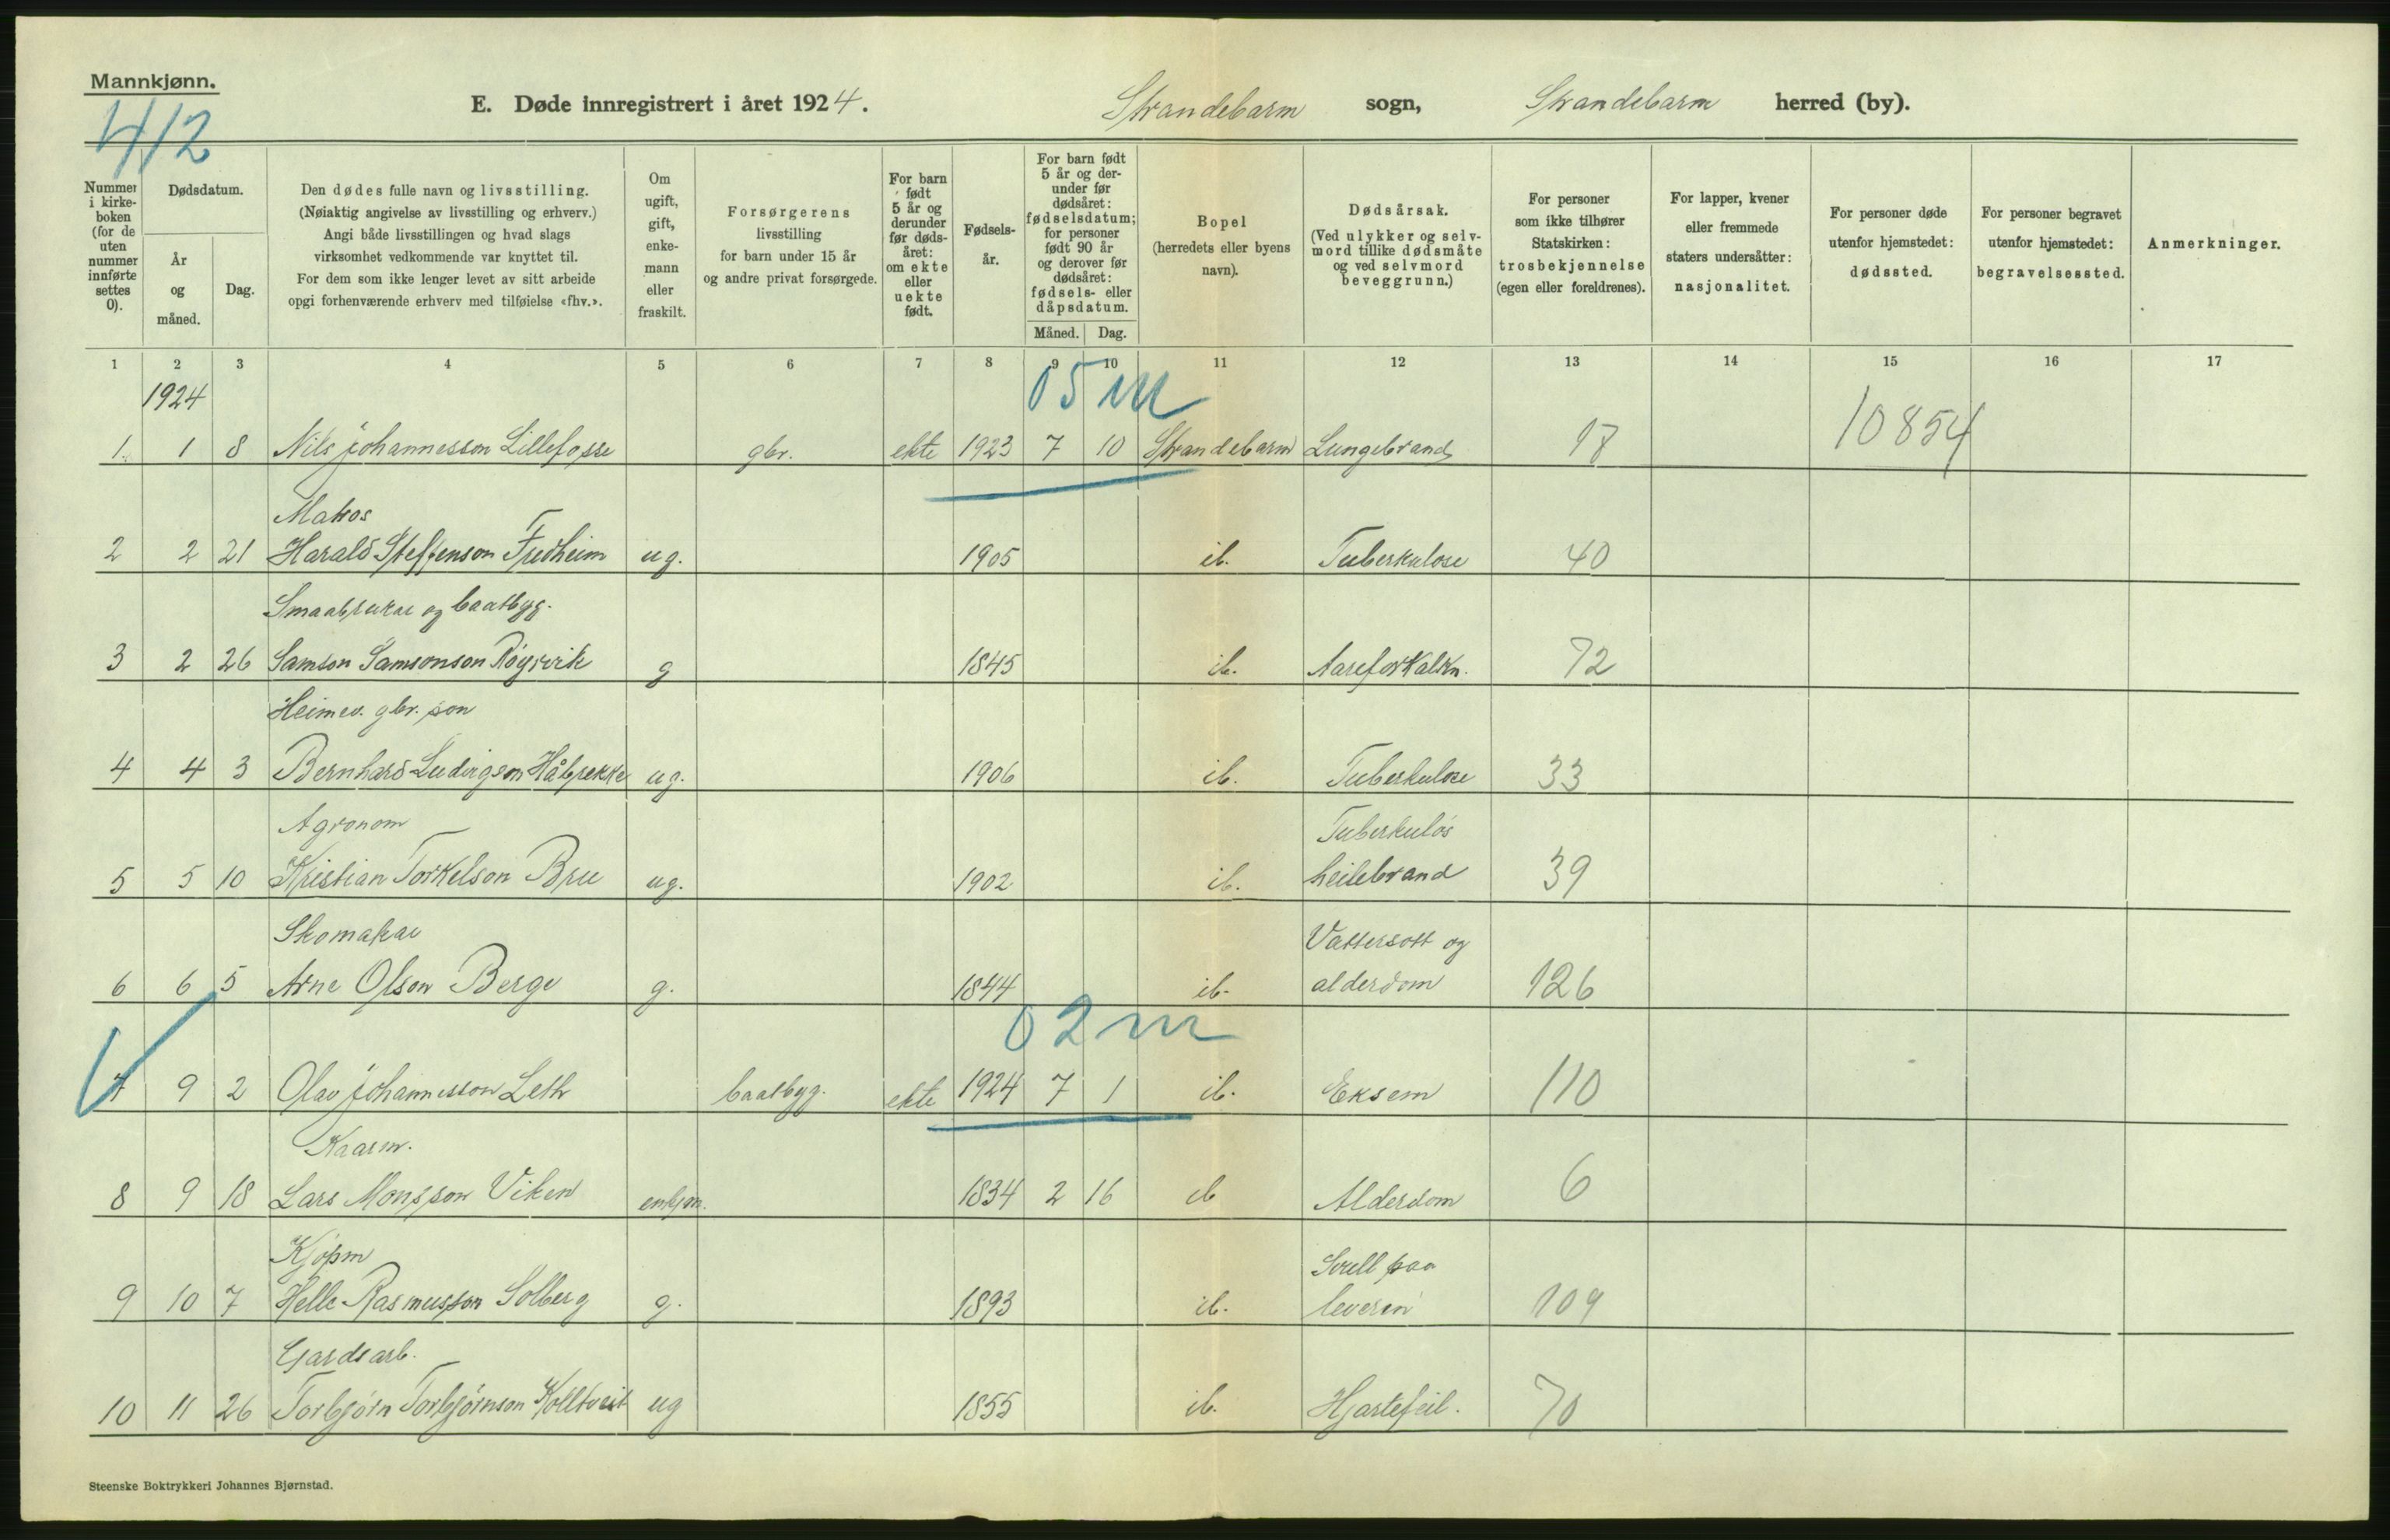 Mannkjønn.
412
E. Døde innregistrert i året 1924. Strandebarm sogn, Strandebarm herred (by).
Nummer i kirkeboken (for de uten nummer innførte settes 0).
Dødsdatum.
År og måned.
Dag.
Den dødes fulle navn og livsstilling.
(Nøiaktig angivelse av livsstilling og erhverv.)
Angi både livsstillingen og hvad slags
virksomhet vedkommende var knyttet til.
For dem som ikke lenger levet av sitt arbeide
opgi forhenværende erhverv med tilføielse «fhv.».
Om ugift, gift, enkemann eller fraskilt.
Forsørgerens
livsstilling
for barn under 15 år
og andre privat forsørgede.
For barn født 5 år og derunder før dødsåret: om ekte eller uekte født.
Fødselsår.
For barn født 5 år og derunder før dødsåret: fødselsdatum; for personer født 90 år og derover før dødsåret: fødsels- eller dåpsdatum.
Måned. Dag.
Bopel
(herredets eller byens
navn).
Dødsårsak.
(Ved ulykker og selvmord tillike dødsmåte og ved selvmord beveggrunn.)
For personer
som ikke tilhører
Statskirken:
trosbekjennelse
(egen eller foreldrenes).
For lapper, kvener
eller fremmede
staters undersåtter:
nasjonalitet.
For personer døde
utenfor hjemstedet:
dødssted.
For personer begravet
utenfor hjemstedet:
begravelsessted.
Anmerkninger.
1 2 3 4 5 6 7 8 9 10 11 12 13 14 15 16 17
1924
05 m
1. 1 8 Nils Johannesson Lillefosse gbr. ekte 1923 7 10 Strandebarm Lungebrand 17 10854
Matros
2 2 21 Harald Steffenson Fredheim ug. 1905 ib. Tuberkulose 40
Smaabrukar og baatbyg.
3 2 26 Samson Samsonson Røysvik g 1845 ib. Aareforkalkn. 72
Heimev. gbr. son
4 4 3 Bernhard Ludvigson Håbrekke ug. 1906 ib. Tuberkulose 33
Agronom Tuberkuløs
5 5 10 Kristian Torkelson Bru ug. 1902 ib. heilebrand 39
Skomakar Vattersott og
6 6 5 Arne Olson Berge g. 1844 ib. alderdom 126
02 m
7 9 2 Olav Johannesson Leth baatbyg. ekte 1924 7 1 ib. Eksem 110
Kaarm.
8 9 18 Lars Monsson Viken enkjm. 1834 2 16 ib Alderdom 6
Kjøpm Svull paa
9 10 7 Helle Rasmusson Solberg g. 1893 ib. leveren 109
Gardsarb.
10 11 26 Torbjørn Torbjørnson Kolltveit ug 1855 ib. Hjartefeil. 70
Steenske Boktrykkeri Johannes Bjørnstad.